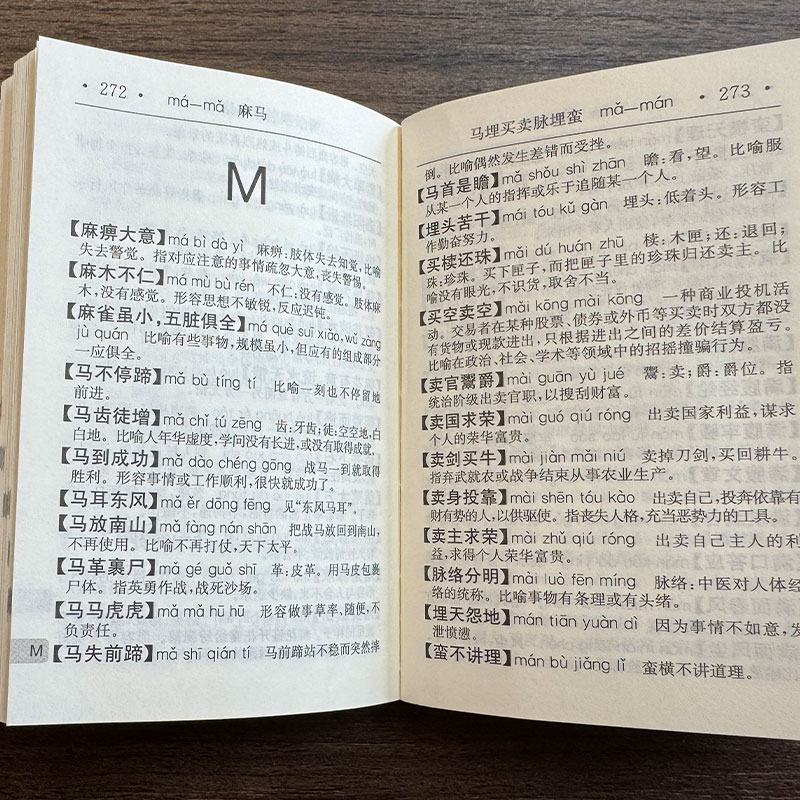 · 272 · má—mǎ 麻马
M
【麻痹大意】má bì dà yì 麻痹：肢体失去知觉，比喻
失去警觉。指对应注意的事情疏忽大意，丧失警惕。
【麻木不仁】má mù bù rén 不仁：没有感觉。肢体麻
木，没有感觉。形容思想不敏锐，反应迟钝。
【麻雀虽小，五脏俱全】má què suī xiǎo，wǔ zàng
jù quán 比喻有些事物，规模虽小，但应有的组成部分
一应俱全。
【马不停蹄】mǎ bù tíng tí 比喻一刻也不停留地
前进。
【马齿徒增】mǎ chǐ tú zēng 齿：牙齿；徒：空空地，白
白地。比喻人年华虚度，学问没有长进，或没有取得成就。
【马到成功】mǎ dào chéng gōng 战马一到就取得
胜利。形容事情或工作顺利，很快就成功了。
【马耳东风】mǎ ěr dōng fēng 见“东风马耳”。
【马放南山】mǎ fàng nán shān 把战马放回到南山，
不再使用。比喻不再打仗，天下太平。
【马革裹尸】mǎ gé guǒ shī 革：皮革。用马皮包裹
尸体。指英勇作战，战死沙场。
【马马虎虎】mǎ mǎ hū hū 形容做事草率、随便，不
负责任。
M
【马失前蹄】mǎ shī qián tí 马前蹄站不稳而突然摔
马埋买卖脉埋蛮 mǎ—mán · 273 ·
倒。比喻偶然发生差错而受挫。
【马首是瞻】mǎ shǒu shì zhān 瞻：看，望。比喻服
从某一个人的指挥或乐于追随某一个人。
【埋头苦干】mái tóu kǔ gàn 埋头：低着头。形容工
作勤奋努力。
【买椟还珠】mǎi dú huán zhū 椟：木匣；还：退回；
珠：珍珠。买下匣子，而把匣子里的珍珠归还卖主。比
喻没有眼光，不识货，取舍不当。
【买空卖空】mǎi kōng mài kōng 一种商业投机活
动。交易者在某种股票、债券或外币等买卖时双方都没
有货物或现款进出，只根据进出之间的差价结算盈亏。
比喻在政治、社会、学术等领域中的招摇撞骗行为。
【卖官鬻爵】mài guān yù jué 鬻：卖；爵：爵位。指
统治阶级出卖官职，以搜刮财富。
【卖国求荣】mài guó qiú róng 出卖国家利益，谋求
个人的荣华富贵。
【卖剑买牛】mài jiàn mǎi niú 卖掉刀剑，买回耕牛。
指弃武就农或战争结束从事农业生产。
【卖身投靠】mài shēn tóu kào 出卖自己，投奔依靠有
财有势的人，以供驱使。指丧失人格，充当恶势力的工具。
【卖主求荣】mài zhǔ qiú róng 出卖自己主人的利
益，求得个人荣华富贵。
【脉络分明】mài luò fēn míng 脉络：中医对人体经
络的统称。比喻事物有条理或有头绪。
【埋天怨地】mán tiān yuàn dì 因为事情不如意，发
泄愤懑。
【蛮不讲理】mán bù jiǎng lǐ 蛮横不讲道理。